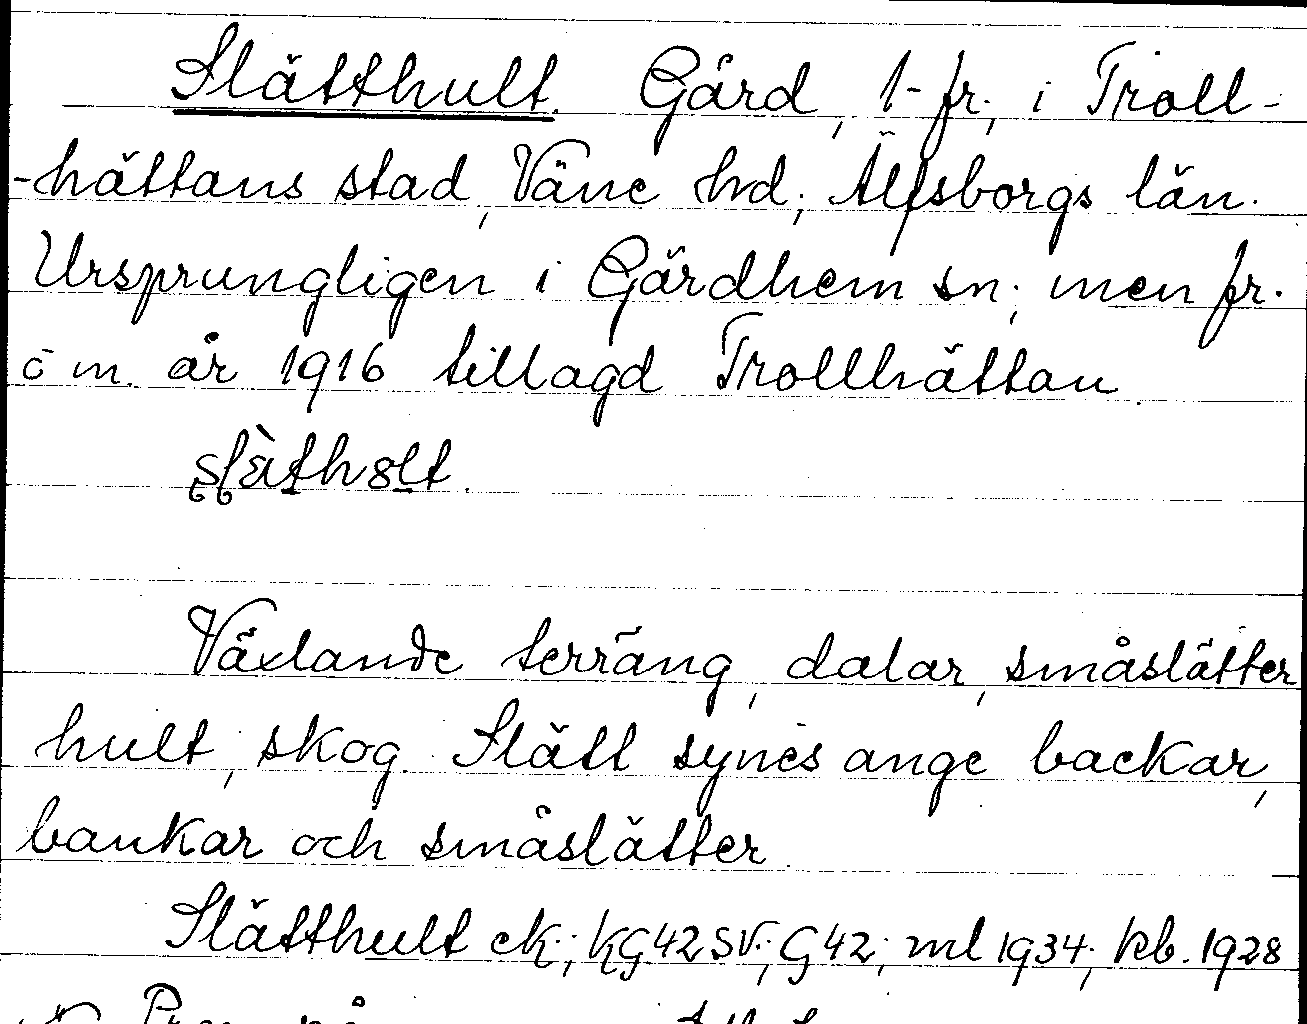 Slätthult. Gård, 1-fr., i Troll-
-hättans stad, Väne hd; Älfsborgs län.
Ursprungligen i Gärdhem sn; men fr.
o m. år 1916 tillagd Trollhättan.
Växlande terräng, dalar, småslätter
hult, skog. Slätt synes ange backar,
bankar och småslätter.
Slätthult ek.; KG42SV.; G42; ml 1934; kb. 1928